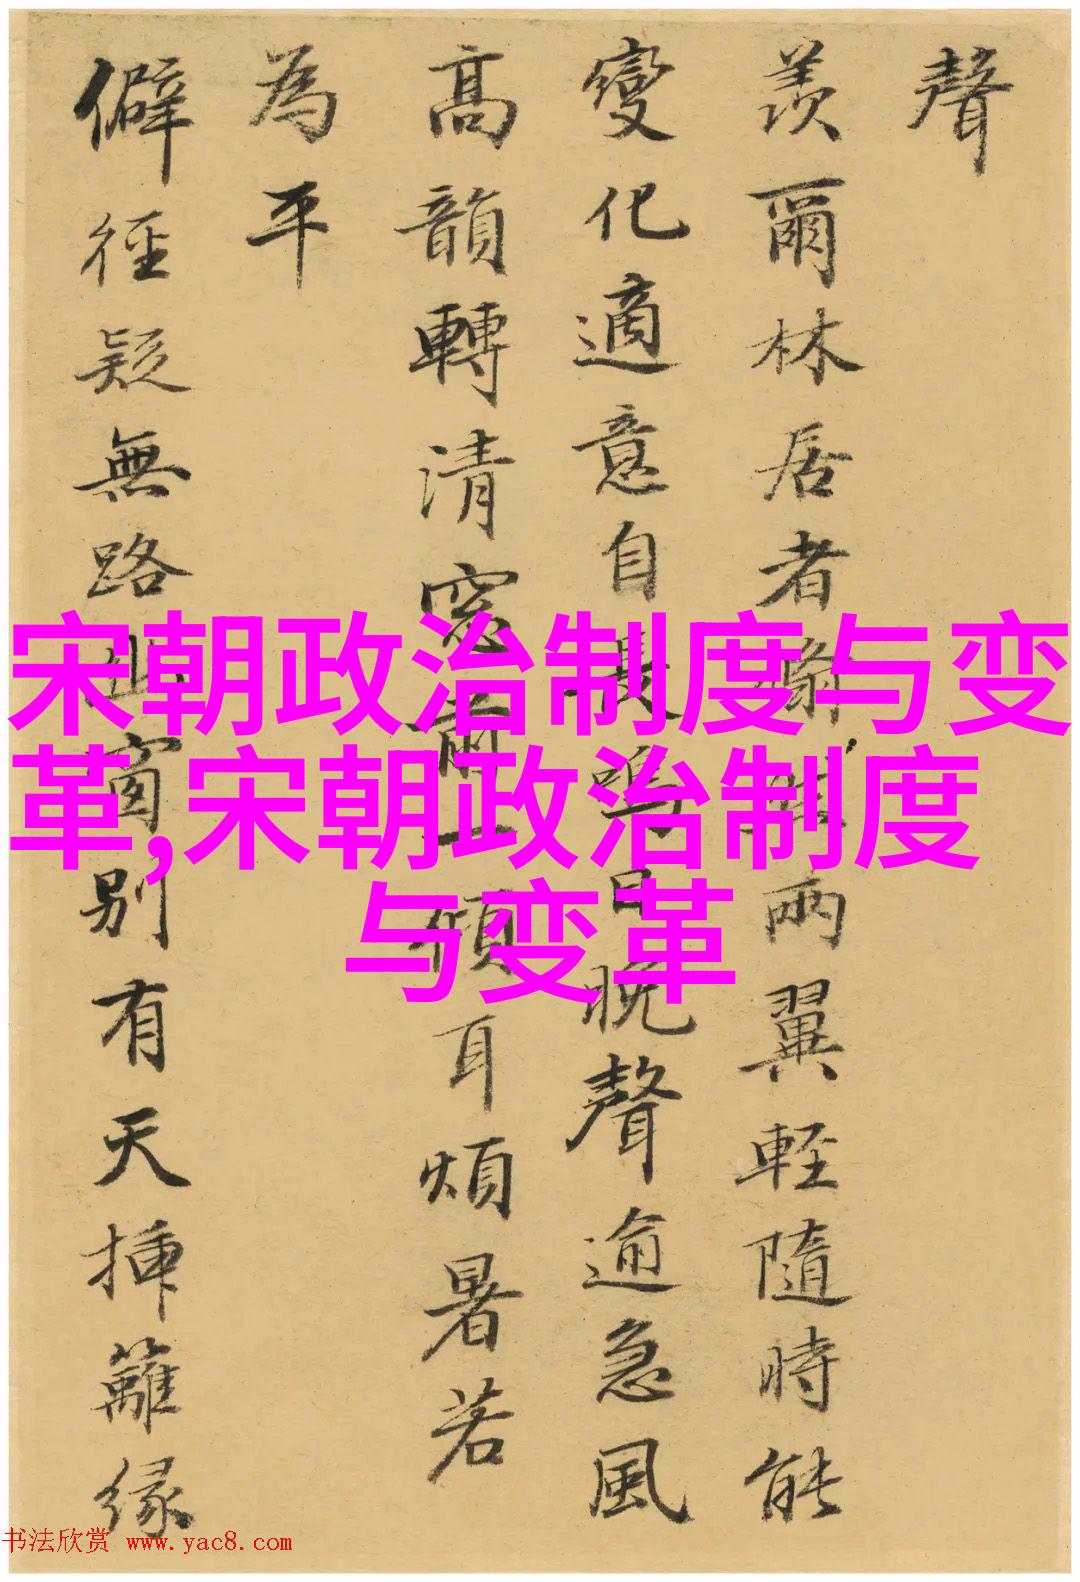 聲
羨爾林居者兩翼輕隨時能
變化適意自長鳴日晚聲逾急風
高韻轉清窓前一傾耳煩暑若
為平
僻徑疑無路此窗別有天揷籬緣
宋朝政治制度与变
革,宋朝政治制度
与变革
书法欣赏 www.yac8.com